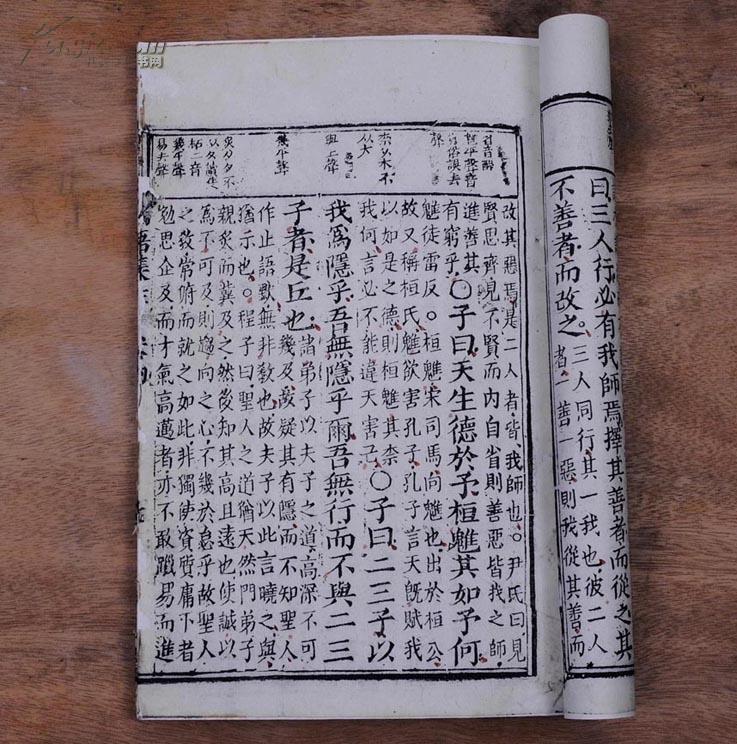 曰三人行必有我師焉擇其善者而從之其
不善者而改之三人同行其一我也彼二人
者一善一惡則我從其善而
改其惡焉是二人者皆我師也○尹氏曰見
賢思齊見不賢而內自省則善惡皆我之師
進善其
有窮乎○子曰天生德於予桓魋其如予何
魋徒雷反○桓魋宋司馬向魋也出於桓公
故又稱桓氏魋欲害孔子孔子言天既賦我
以如是之德則桓魋其柰
我何言必不能違天害己○子曰二三子以
我為隱乎吾無隱乎爾吾無行而不與二三
子者是丘也諸弟子以夫子之道高深不可
幾及故疑其有隱而不知聖人
作止語默無非教也故夫子以此言曉之與
猶示也○程子曰聖人之道猶天然門弟子
親炙而冀及之然後知其高且遠也使誠以
為不可及則趨向之心不幾於怠乎故聖人
之教常俯而就之如此非獨使資質庸下者
勉思企及而才氣高邁者亦不敢躐易而進
省音醒
魋平聲音
俗誤去
聲
柰从木不
从大
與上聲
幾平聲
炙从夕不
幾平聲
易去聲